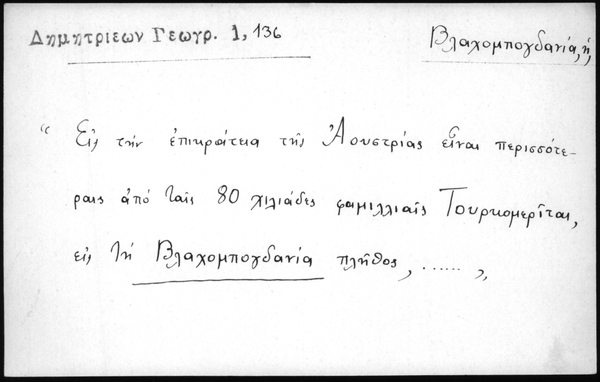 Δημητριεων Γεωγρ. 1, 136
Βλαχομπογδανία, ἡ,
“ Εἰς τὴν ἐπικράτεια τῆς Ἀουστρίας εἶναι περισσότε-
ραις ἀπὸ ταῖς 80 χιλιάδες φαμιλλιαῖς Τουρκομερῖται,
εἰς τὴ Βλαχομπογδανία πλῆθος, ...... „